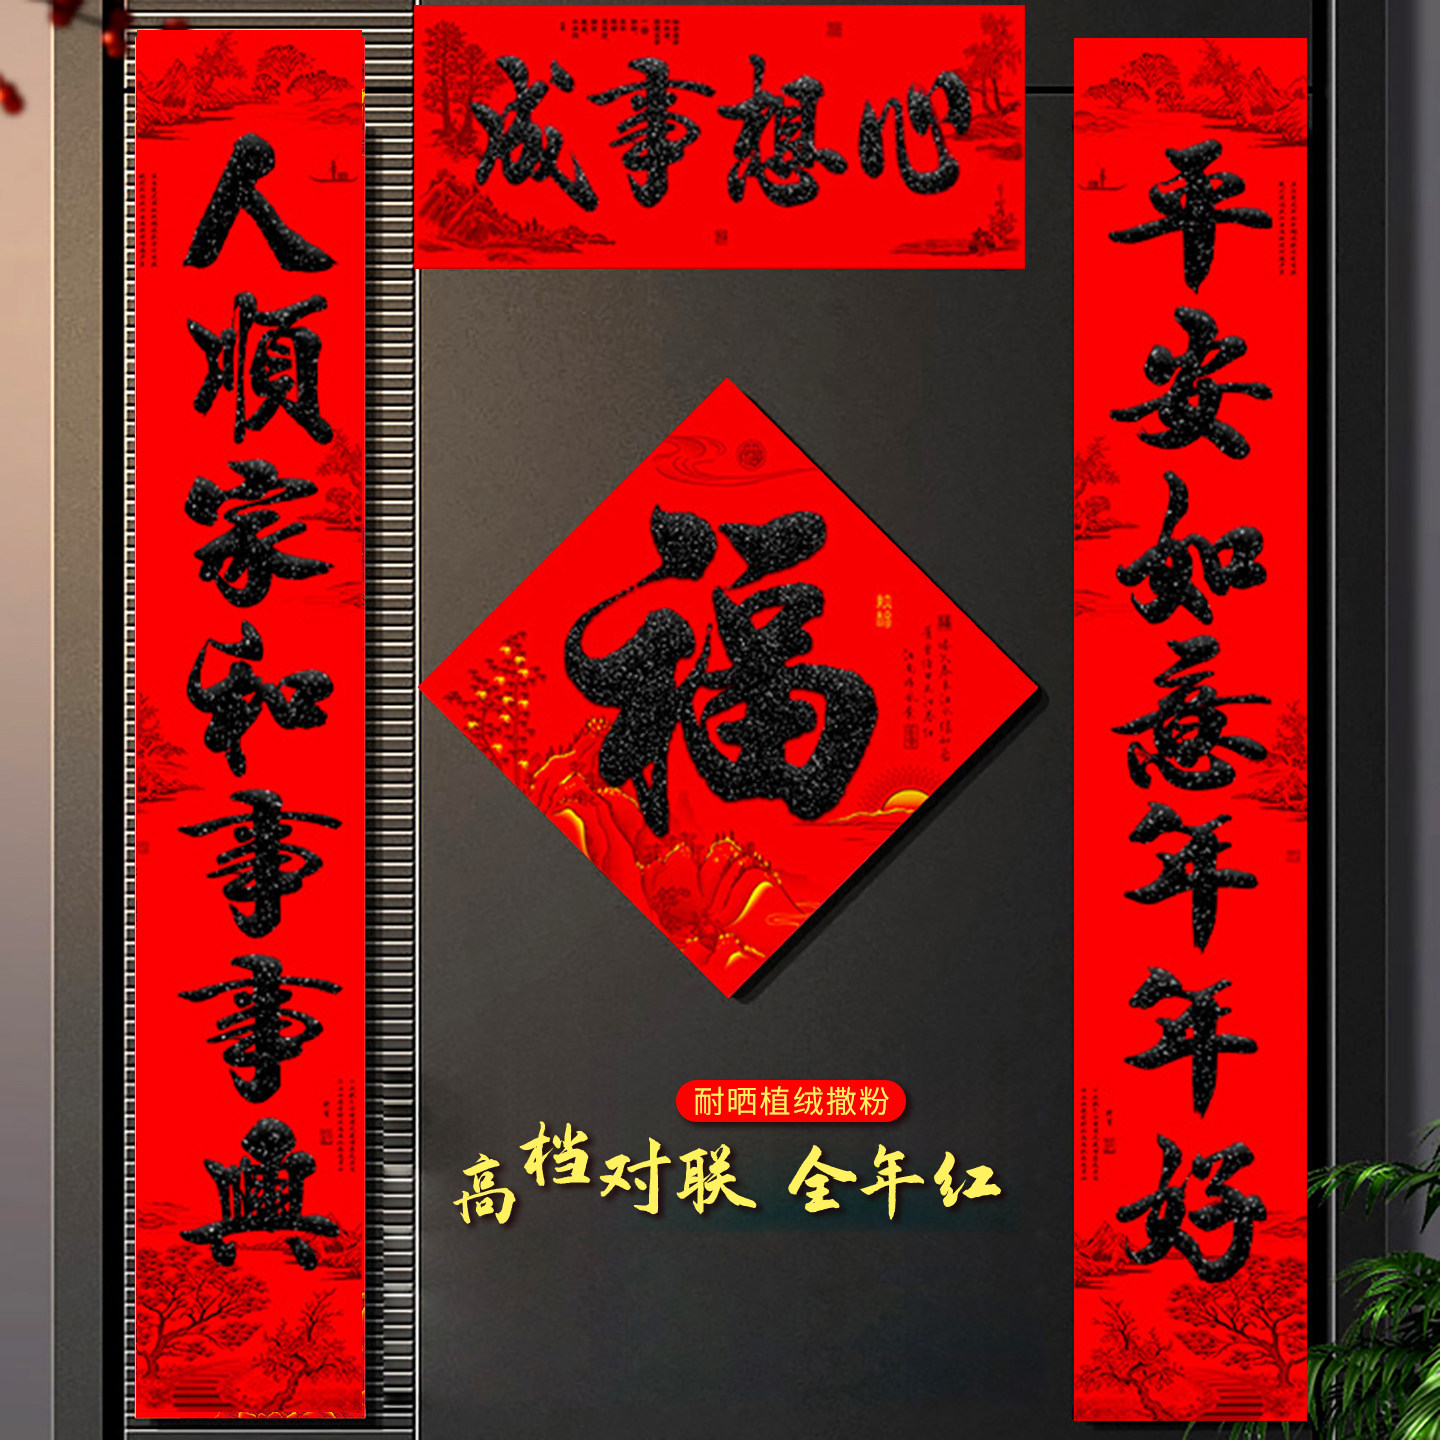 成事想心
平安如意年年好
人順家和事事興
福
耐晒植绒撒粉
高档对联 全年红